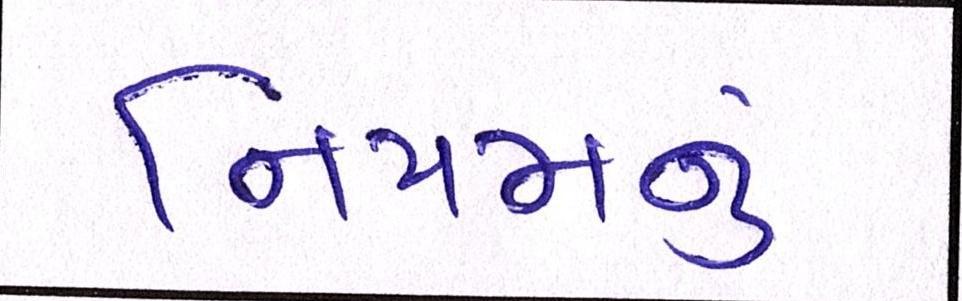 નિયમનું